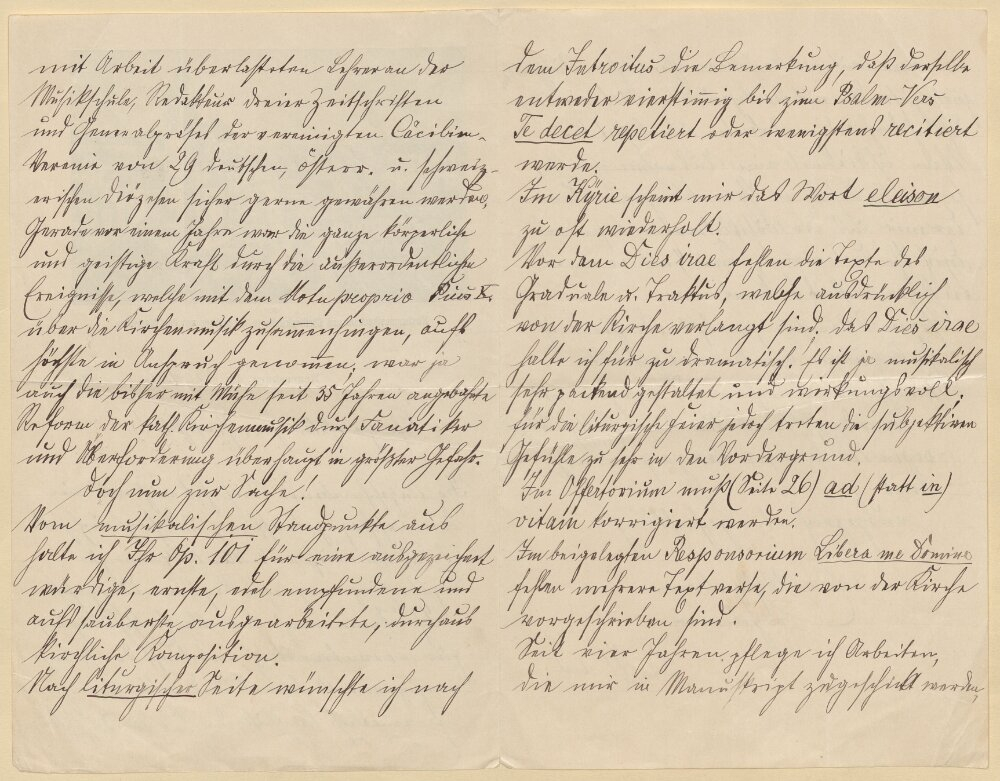 mit Arbeit überlasteten Lehrer an der
Musikschule, Redakteur dreier Zeitschriften
und Generalpräses der vereinigten Cäcilien-
Vereine von 29 deutschen, österr. u. schweiz-
erischen Diözesen sicher gerne gewähren werden.
Gerade vor einem Jahre war die ganze körperliche
und geistige Kraft durch die außerordentlichen
Ereignisse, welche mit dem Motu proprio Pius X.
über die Kirchenmusik zusammenhingen, aufs
höchste in Anspruch genommen; war ja
auch die bisher mit Mühe seit 35 Jahren angebahnte
Reform der kath. Kirchenmusik durch Fanatiker
und Überforderung überhaupt in größter Gefahr.
Doch nun zur Sache!
Vom musikalischen Standpunkte aus
halte ich Ihr Op. 101 für eine ausgezeichnet
würdige, ernste, edel empfundene und
aufs sauberste ausgearbeitete, durchaus
kirchliche Komposition.
Nach liturgischer Seite wünschte ich nach
dem Introitus die Bemerkung, daß derselbe
entweder vierstimmig bis zum Psalm-Vers
Te decet repetiert oder wenigstens recitiert
werde.
Im Kyrie scheint mir das Wort eleison
zu oft wiederholt.
Vor dem Dies irae fehlen die Texte des
Graduale u. Traktus, welche ausdrücklich
von der Kirche verlangt sind. Das Dies irae
halte ich für zu dramatisch. Es ist ja musikalisch
sehr packend gestaltet und wirkungsvoll;
für die liturgische Feier jedoch treten die subjektiven
Gefühle zu sehr in den Vordergrund.
Im Offertorium muß (Seite 26) ad (statt in)
vitam korrigiert werden.
Im beigelegten Responsorium Libera me Domine
fehlen mehrere Textverse, die von der Kirche
vorgeschrieben sind.
Seit vier Jahren pflege ich Arbeiten,
die mir in Manuskript zugeschickt werden,